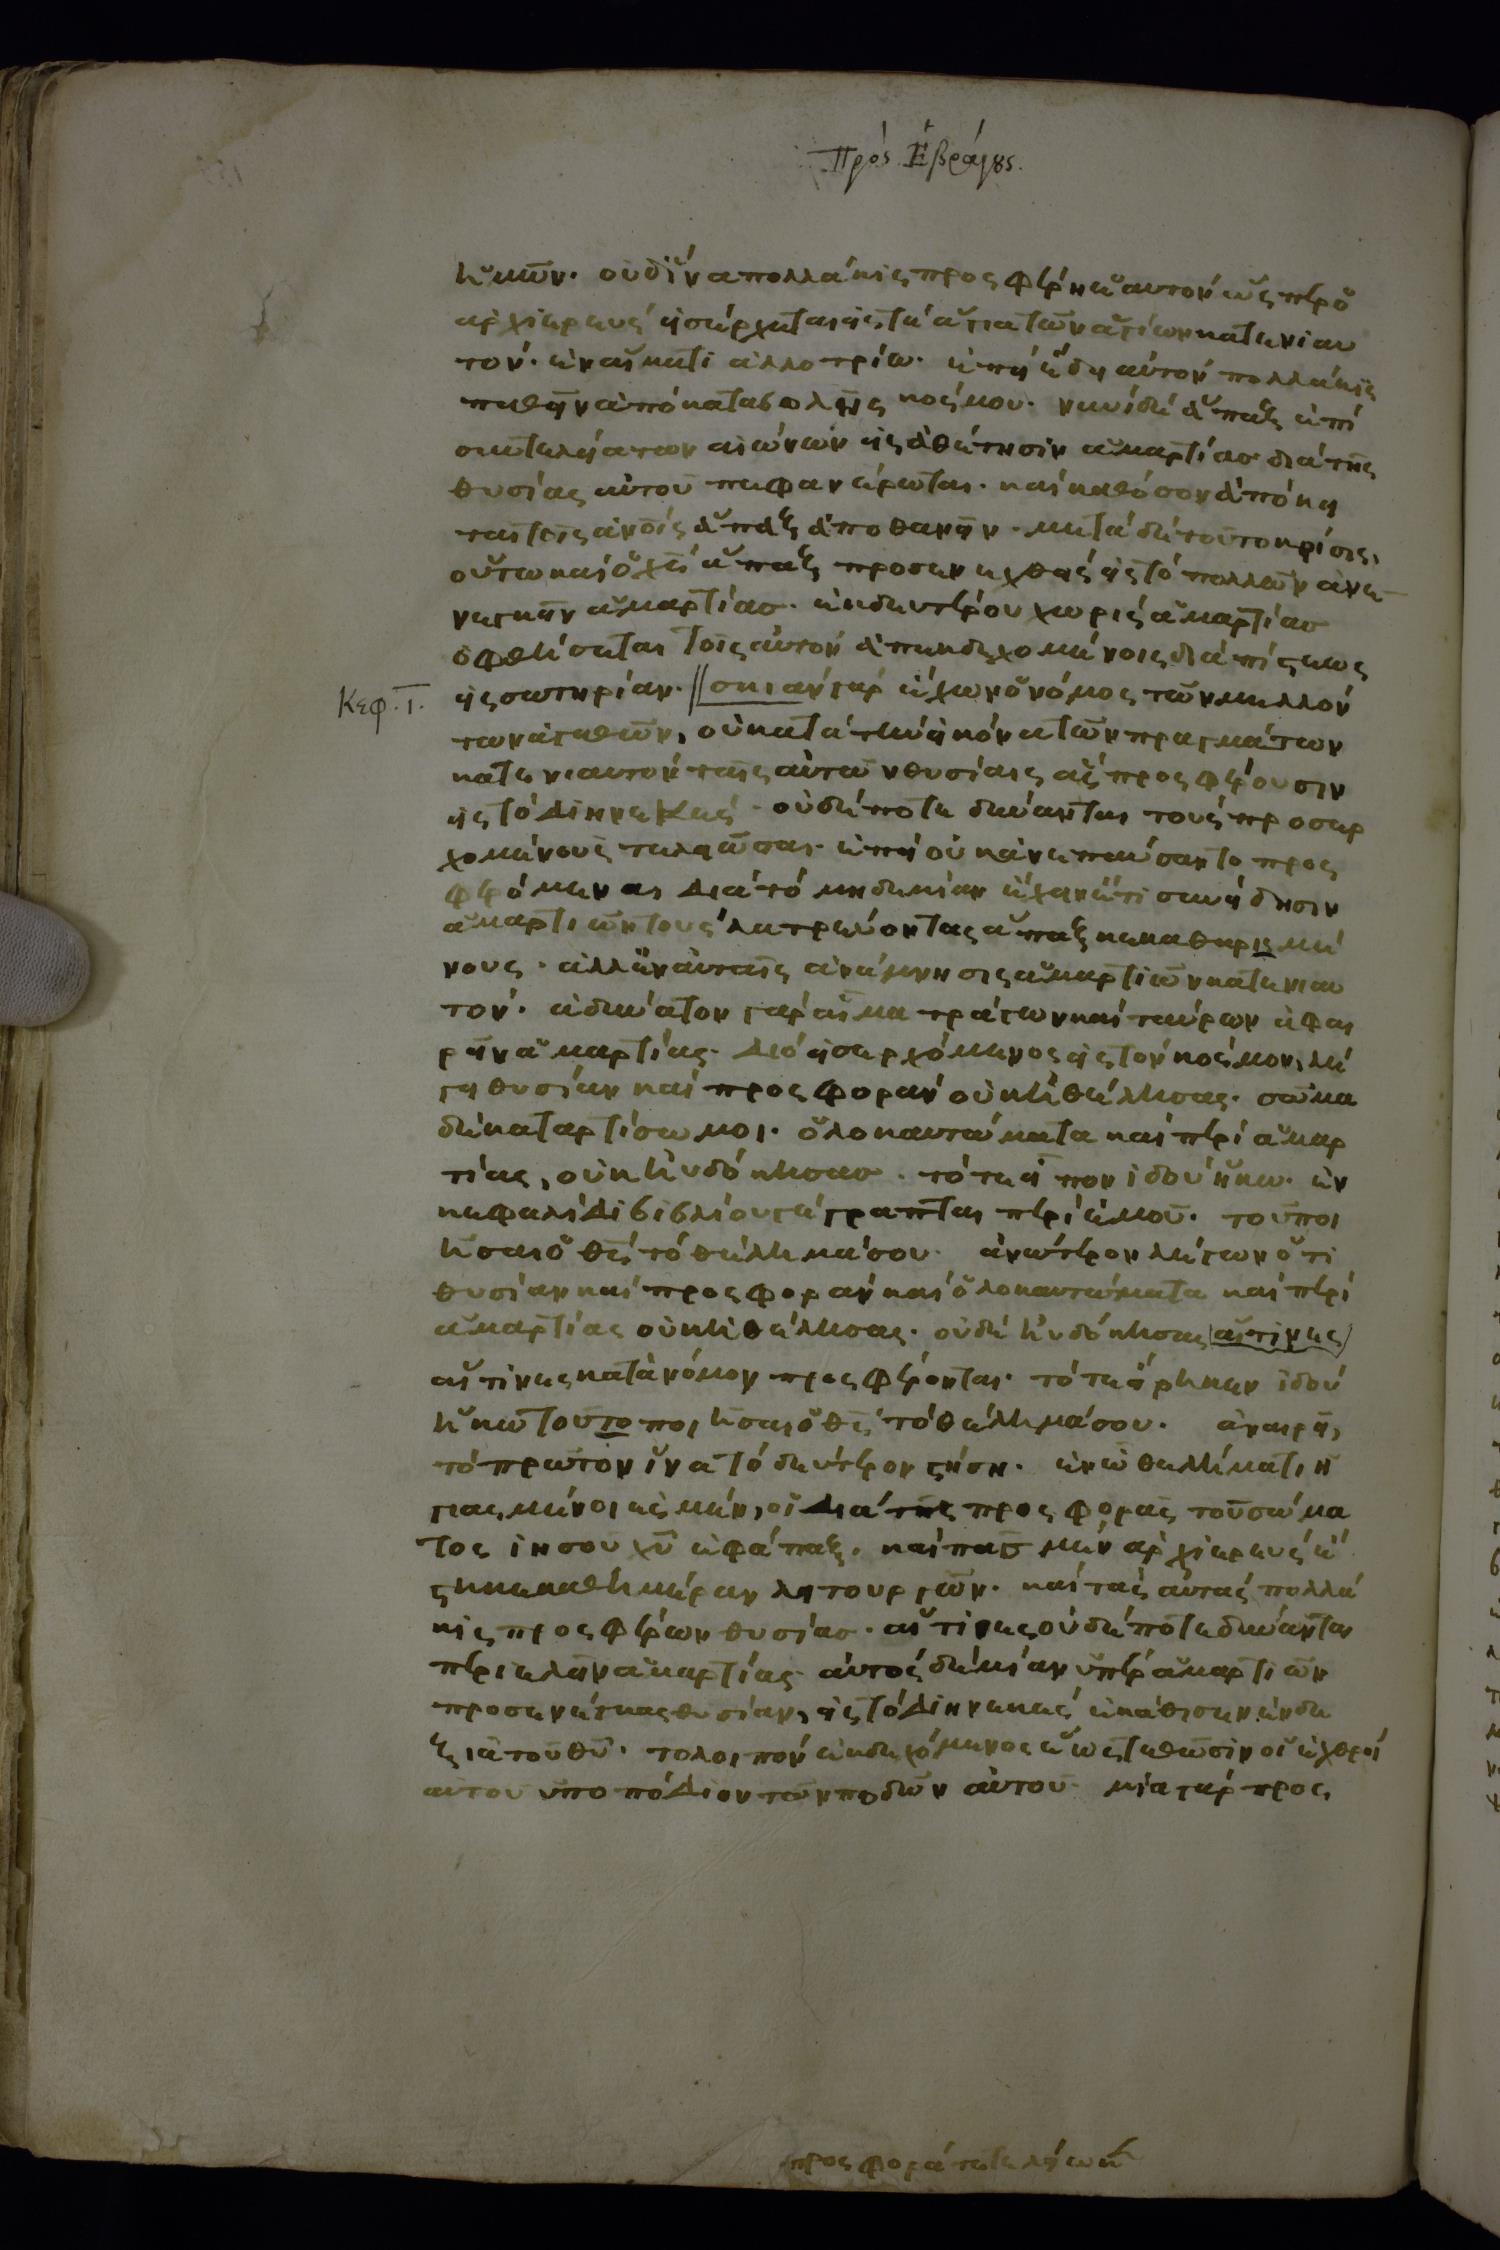 Πρός Ἑβραίȣς.
ἡμῶν. οὐδ' ἵνα πολλάκις προσφέρει ἑαυτόν ὥσπερ ὁ
ἀρχιερεύς εἰσέρχεται εἰς τά ἅγια τῶν ἁγίων κατ ενιαυ
τόν. ἐν αἵματι ἀλλοτρίω. ἐπεί ἔδει αὐτόν πολλάκις
παθεῖν ἀπό καταβολῆς κόσμου. νυνί δέ ἅπαξ ἐπί
συντελεία των αἰώνων εἰς ἀθέτησιν ἁμαρτίασ διά τῆς
θυσίας αὐτοῦ πεφανέρωται. καί καθόσον ἀπόκει
ται τοῖς ἀνοίς ἅπαξ ἀποθανεῖν. μετά δέ τοῦτο κρίσις,
οὕτω καί ὁ χσ ἅπαξ προσενεχθείς εἰς τό πολλῶν ἀνε
νεγκεῖν ἁμαρτίασ. ἐκ δευτέρου χωρίς ἁμαρτίασ
ὀφθήσεται τοῖς αὐτόν ἀπεκδεχομένοις διά πίστεως
εἰς σωτηρίαν. // σκιάν γάρ ἔχων ὁ νόμος τῶν μελλόν
Κεφ. Ι.
των ἀγαθῶν, οὐ κατά τήν εἰκόνα τῶν πραγμάτων
κατ ενιαυτόν ταῖς αὐτῶν θυσίαις ἅς προσφέρουσιν
εἰς τό διηνεκές. οὐδέποτε δύνανται τούς προσερ
χομένους τελειῶσαι. ἐπεί οὐκ ἄν ἐπαύσαντο προς
φερόμεναι διά τό μηδεμίαν ἔχειν ἔτι συνείδησιν
ἁμαρτιῶν τούς λατρεύοντας ἅπαξ κεκαθηρισμέ
νους. ἀλλ' ἐν αὐταῖς ἀνάμνησις ἁμαρτιῶν κατ ενιαυ
τόν. ἀδύνατον γάρ αἷμα τράγων καί ταύρων ἀφαι
ρεῖν ἁμαρτίας. διό εἰσερχόμενος εἰς τόν κόσμον, λέ
γει θυσίαν καί προσφοράν οὐκ ἠθέλησας. σῶμα
δέ καταρτίσω μοι. ὁλοκαυτώματα καί περί ἁμαρ
τίας, οὐκ ηὐδόκησασ. τότε εἶπον ἰδού ἥκω. ἐν
κεφαλίδι βιβλίου γέγραπται περί ἐμοῦ. τοῦ ποι
ῆσαι ὁ θσ τό θέλημά σου. ἀνώτερον λέγων ὅτι
θυσίαν καί προσφοράν καί ὁλοκαυτώματα καί περί
ἁμαρτίας οὐκ ἠθέλησας. οὐδέ ηὐδόκησας (αἵτινες)
αἵτινες κατά νόμον προσφέρονται. τότε εἴρηκεν ἰδού
ἥκω τοῦτο ποιῆσαι ὁ θσ τό θέλημά σου. ἀναιρεῖ,
τό πρῶτον ἵνα τό δεύτερον στήση. ἐν ὧ θελήματι ἡ
γιασμένοι ἐσμέν, οἱ διά τῆς προσφορᾶς τοῦ σώμα
τος ἰησοῦ χυ ἐφάπαξ. καί πασ μέν ἀρχιερεύς ἕ
στηκε καθημέραν λειτουργῶν. καί τάς αὐτάς πολλά
κις προσφέρων θυσίασ. αἵτινες οὐδέποτε δύνανται
περιελεῖν ἁμαρτίας. αὐτός δέ μίαν ὑπέρ ἁμαρτιῶν
προσενέγκας θυσίαν, εἰς τό διηνεκές ἐκάθισεν ἐν δε
ξιᾶ τοῦ θυ. τολοιπόν ἐκδεχόμενος ἕως τεθῶσιν οἱ ἐχθροί
αὐτοῦ ὑποπόδιον τῶν ποδῶν αὐτοῦ. μία γάρ προς
προσφορά τετελείωκ